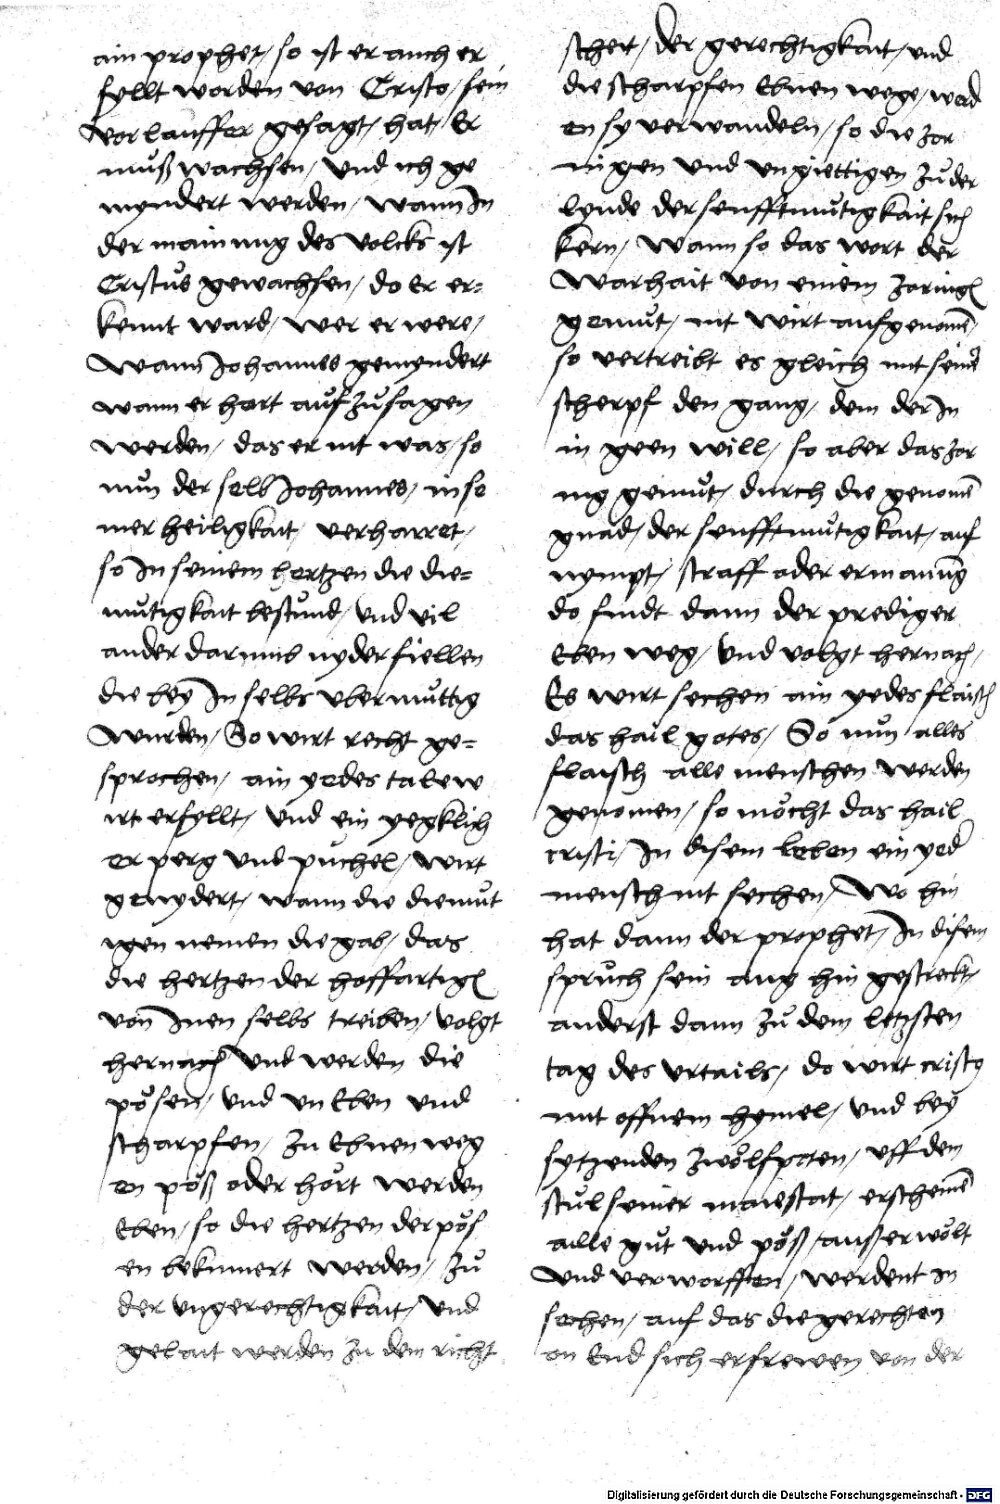 ain prophet / so ist er auch er
fyllt worden von Cristo / sein
vorlauffer gesagt / hat / Er
muß wachsen / Und ich ge
myndert werden / wann In
der mainung des volcks ist
Cristus gewachsen / do Er er=
kennt ward / wer er were /
Wann Johannes gemyndert
wann er hort auf zuͦsagen
werden / das er nit was / so
nun der selb Johannes / in se
iner heiligkait / verharret /
so In seinem hertzen die die=
muͦtigkait bestuͦnd / Und vil
ander darumb nyder fiellen
die bey In selbs vbermuͦttig
Wurden / So wirt recht ge=
sprochen / ain yedes talew
irt erfyllt / Und ein yegklich
er perg Und puchel / wirt
genydert / wann die diemuͦt
igen nemen die gab / das
die hertzen der hoffartigen
von Inen selbs treiben / volgt
hernach Und werden die
pösen / Und vn Eben Und
scharpfen / zu Ebnen weg
en pöß oder hört werden
Eben / so die hertzen der pös
en bekumert werden / Zuͦ
der Ungerechtigkait / Und
gelait werden Zu dem richt
scheit / der gerechtigkait / und
die scharpfen Ebnen wege / werd
en sy verwandeln / so die zor
nigen Und vngiettigen Zuͦ der
lynde der sennfftmuͦtigkait sich
kern / Wann so das wort der
Warhait von einem zornigen
gemuͦt / nit wirt aufgenomen /
so vertreibt es gleich mit seiner
scherpf den gang / dem der In
in geen will / so aber das zor
nig gemuͦt / durch die genomen
gnad / der sennfftmuͦtigkait / auf
nympt / straff oder ermanung
do findt dann der prediger
Eben weg / Und volgt hernach /
Es wirt sechen ain yedes flaisch
das hail gotes / So nun alles
flaisch alle menschen werden
genomen / so möcht das hail
cristi / In disem leben ein yed
mensch nit sechen / Wo hin
hat dann der prophet / In disem
spruͦch sein aug hin gestreckt /
anderst dann zuͦ dem letzsten
tag des vrtails / do wirt cristq
mit offnem hymel / Und bey
sytzenden zwölfpoten / vff dem
stuͦl seiner maiestat / erscheinen
alle guͦt und pöß / außerwölt
Und verworffen / werdent In
sechen / auf das die gerechten
on End sich erfrewen von der
Digitalisierung gefördert durch die Deutsche Forschungsgemeinschaft - DFG